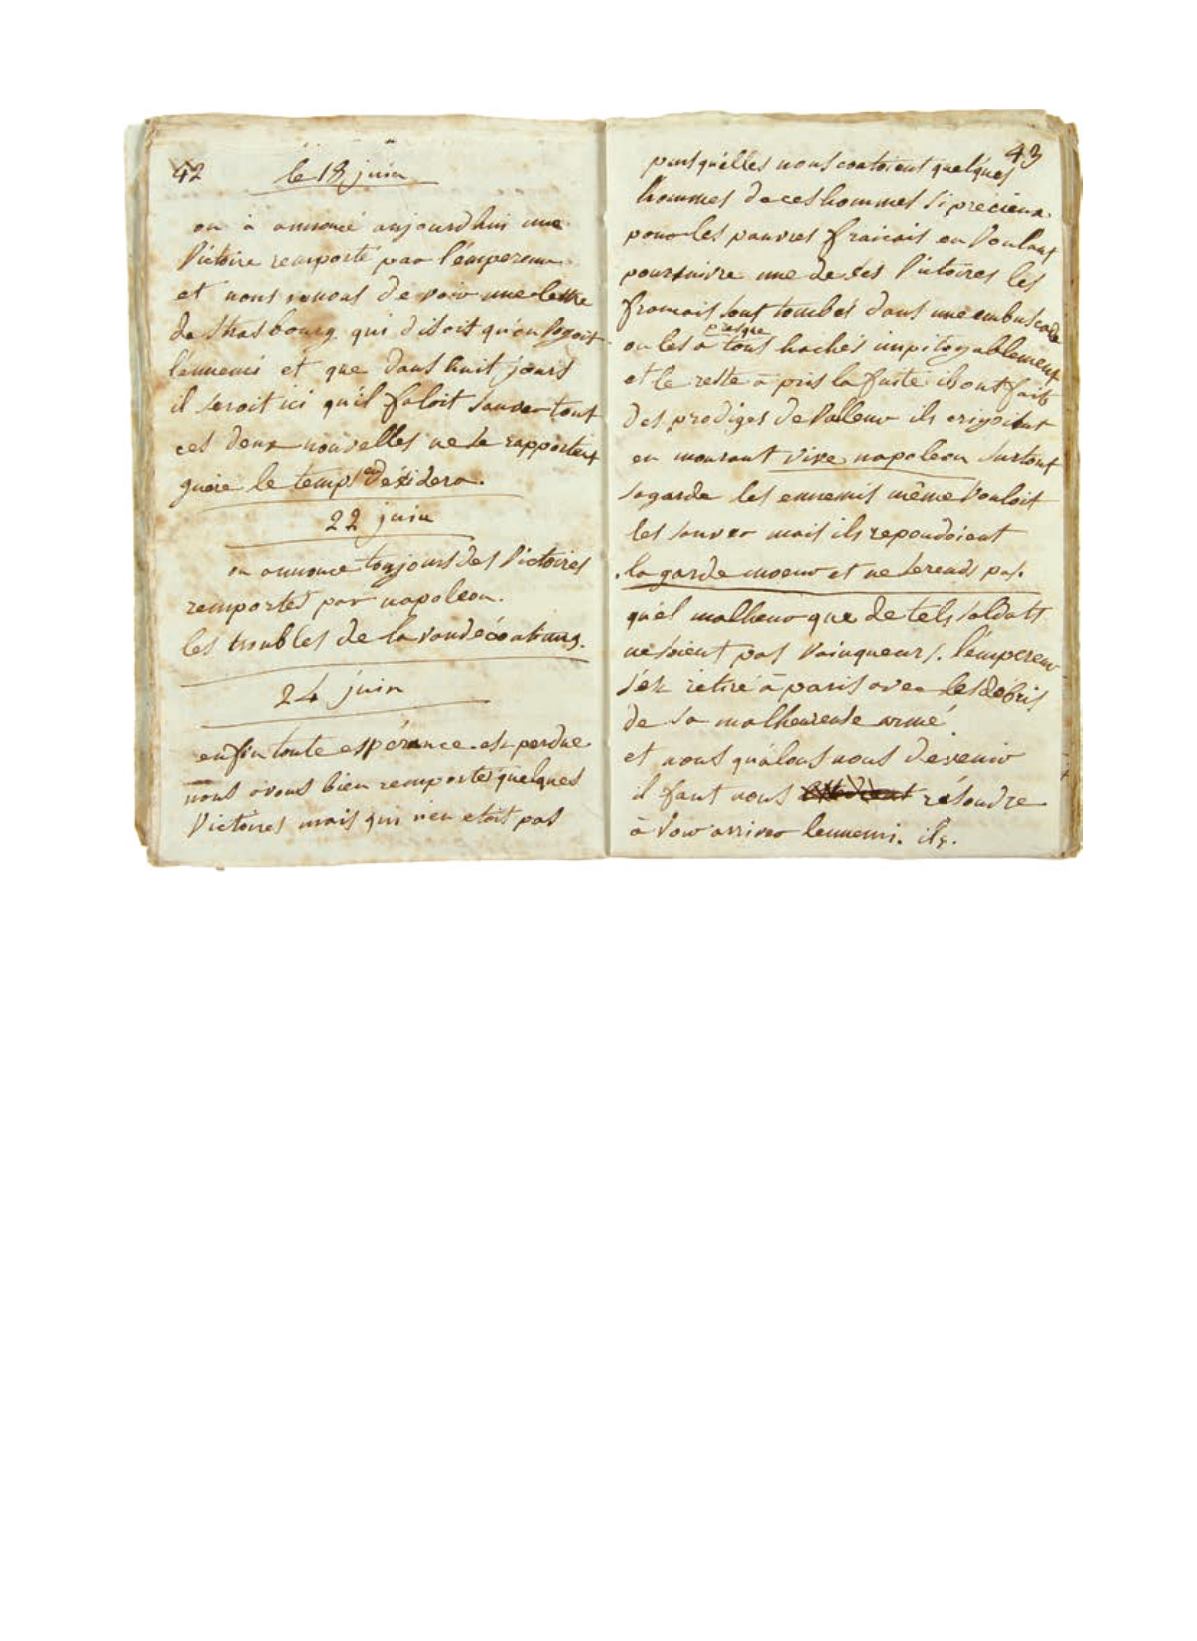 42
le 18 juin
on à annoncé aujourdhui une
Victoire remporté par l'émpereur
et nous venons de voir une lettre
de Strasbourg qui disoit qu'on
l'ennemi et que dans huit jours
il seroit ici qu'il faloit sauver tout
ces deux nouvelles ne se rapportent
guère le temps en désidera.
22 juin
on annonce toujours des Victoires
remportes par napoleon.
les troubles de la vandée continug.
24 juin
enfin toute espérance est perdue
nous avons bien remporté quelques
Victoires mais qui n'en etoit pas
43
puisqu'elles nous coutoient quelques
hommes de ces hommes si précieux
pour les pauvres fraicais en Voulant
poursuivre une de ses Victoires les
francais sont tombés dans une embuscade
presque
ou les a tous hachés impitoyablement
et le reste à pris la fuite ils ont fait
des prodiges de Valleur ils criyoient
en mourant vive napoleon surtout
sa garde les ennemis même Vouloit
les sauver mais ils repondoient
la garde moeur et ne se rends pas.
qu'el malheur que de tels soldats
ne soient pas Vainqueurs. l'émpereur
s'est retiré à paris avec les débris
de sa malheureuse armé
et nous qu'alons nous devenir
il faut nous résoudre
à Voir arriver l'ennemi. ils.